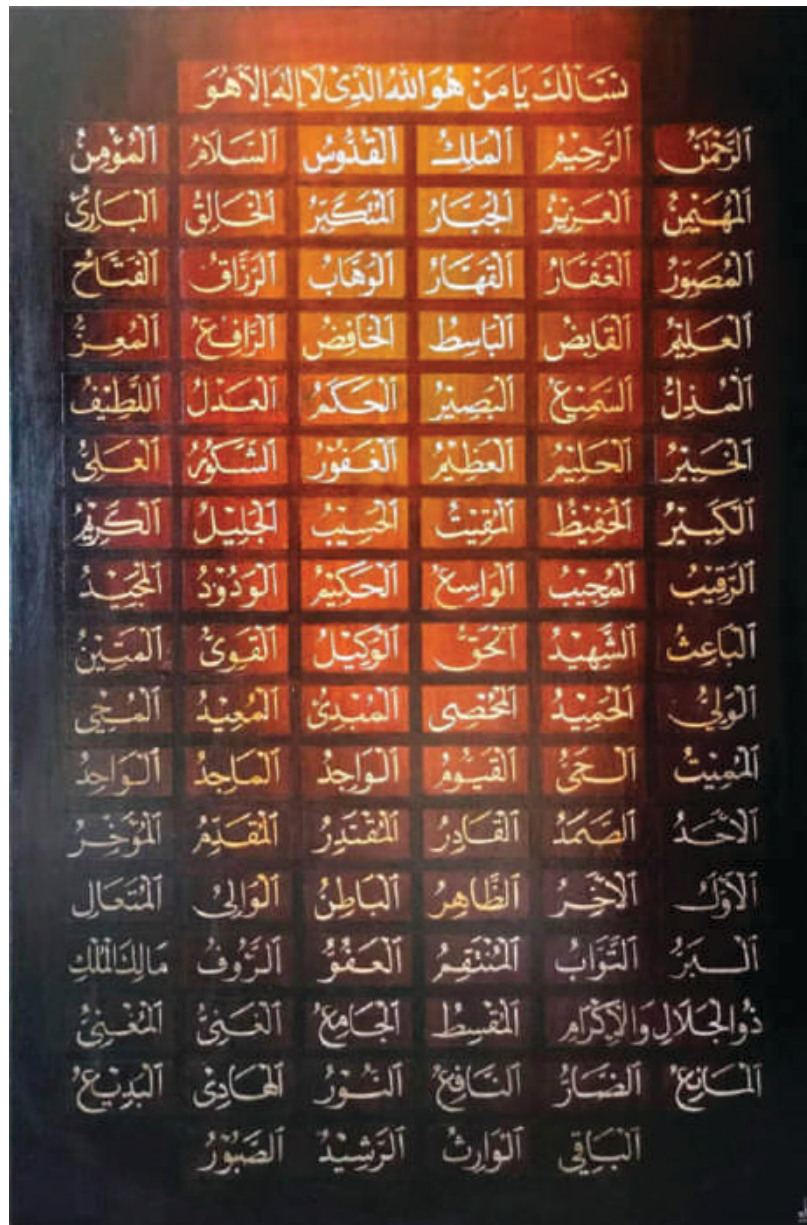 نَسْأَلُكَ يَا مَنْ هُوَ اللهُ الَّذِي لَا إِلٰهَ إِلَّا هُوَ
اَلرَّحْمٰنُ اَلرَّحِيْمُ اَلْمَلِكُ اَلْقُدُّوْسُ اَلسَّلَامُ اَلْمُؤْمِنُ
اَلْمُهَيْمِنُ اَلْعَزِيْزُ اَلْجَبَّارُ اَلْمُتَكَبِّرُ اَلْخَالِقُ اَلْبَارِئُ
اَلْمُصَوِّرُ اَلْغَفَّارُ اَلْقَهَّارُ اَلْوَهَّابُ اَلرَّزَّاقُ اَلْفَتَّاحُ
اَلْعَلِيْمُ اَلْقَابِضُ اَلْبَاسِطُ اَلْخَافِضُ اَلرَّافِعُ اَلْمُعِزُّ
اَلْمُذِلُّ اَلسَّمِيْعُ اَلْبَصِيْرُ اَلْحَكَمُ اَلْعَدْلُ اَللَّطِيْفُ
اَلْخَبِيْرُ اَلْحَلِيْمُ اَلْعَظِيْمُ اَلْغَفُوْرُ اَلشَّكُوْرُ اَلْعَلِيُّ
اَلْكَبِيْرُ اَلْحَفِيْظُ اَلْمُقِيْتُ اَلْحَسِيْبُ اَلْجَلِيْلُ اَلْكَرِيْمُ
اَلرَّقِيْبُ اَلْمُجِيْبُ اَلْوَاسِعُ اَلْحَكِيْمُ اَلْوَدُوْدُ اَلْمَجِيْدُ
اَلْبَاعِثُ اَلشَّهِيْدُ اَلْحَقُّ اَلْوَكِيْلُ اَلْقَوِيُّ اَلْمَتِيْنُ
اَلْوَلِيُّ اَلْحَمِيْدُ اَلْمُحْصِي اَلْمُبْدِئُ اَلْمُعِيْدُ اَلْمُحْيِي
اَلْمُمِيْتُ اَلْحَيُّ اَلْقَيُّوْمُ اَلْوَاجِدُ اَلْمَاجِدُ اَلْوَاحِدُ
اَلْاَحَدُ اَلصَّمَدُ اَلْقَادِرُ اَلْمُقْتَدِرُ اَلْمُقَدِّمُ اَلْمُؤَخِّرُ
اَلْاَوَّلُ اَلْاٰخِرُ اَلظَّاهِرُ اَلْبَاطِنُ اَلْوَالِيُ اَلْمُتَعَالِ
اَلْبَرُّ اَلتَّوَّابُ اَلْمُنْتَقِمُ اَلْعَفُوُّ اَلرَّءُوْفُ مَالِكَ الْمُلْكِ
ذُو الْجَلَالِ وَالْاِكْرَامِ اَلْمُقْسِطُ اَلْجَامِعُ اَلْغَنِيُّ اَلْمُغْنِيُّ
اَلْمَانِعُ اَلضَّارُّ اَلنَّافِعُ اَلنُّوْرُ اَلْهَادِيْ اَلْبَدِيْعُ
اَلْبَاقِي اَلْوَارِثُ اَلرَّشِيْدُ اَلصَّبُوْرُ